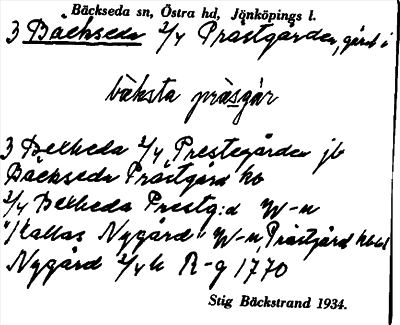 Bäckseda sn, Östra hd, Jönköpings l.
3 Bäckseda 2/4 Prästgården, gård i
bàksta prä̀sgàr
3 Bexheda 2/4 Prestegården jb
Bäckseda Prästgård hb
2/4 Bexheda Prestg:d W-n
"/Kallas Nygård" W-n, Prästgård
Nygård 2/4 h R-g 1770
Stig Bäckstrand 1934.